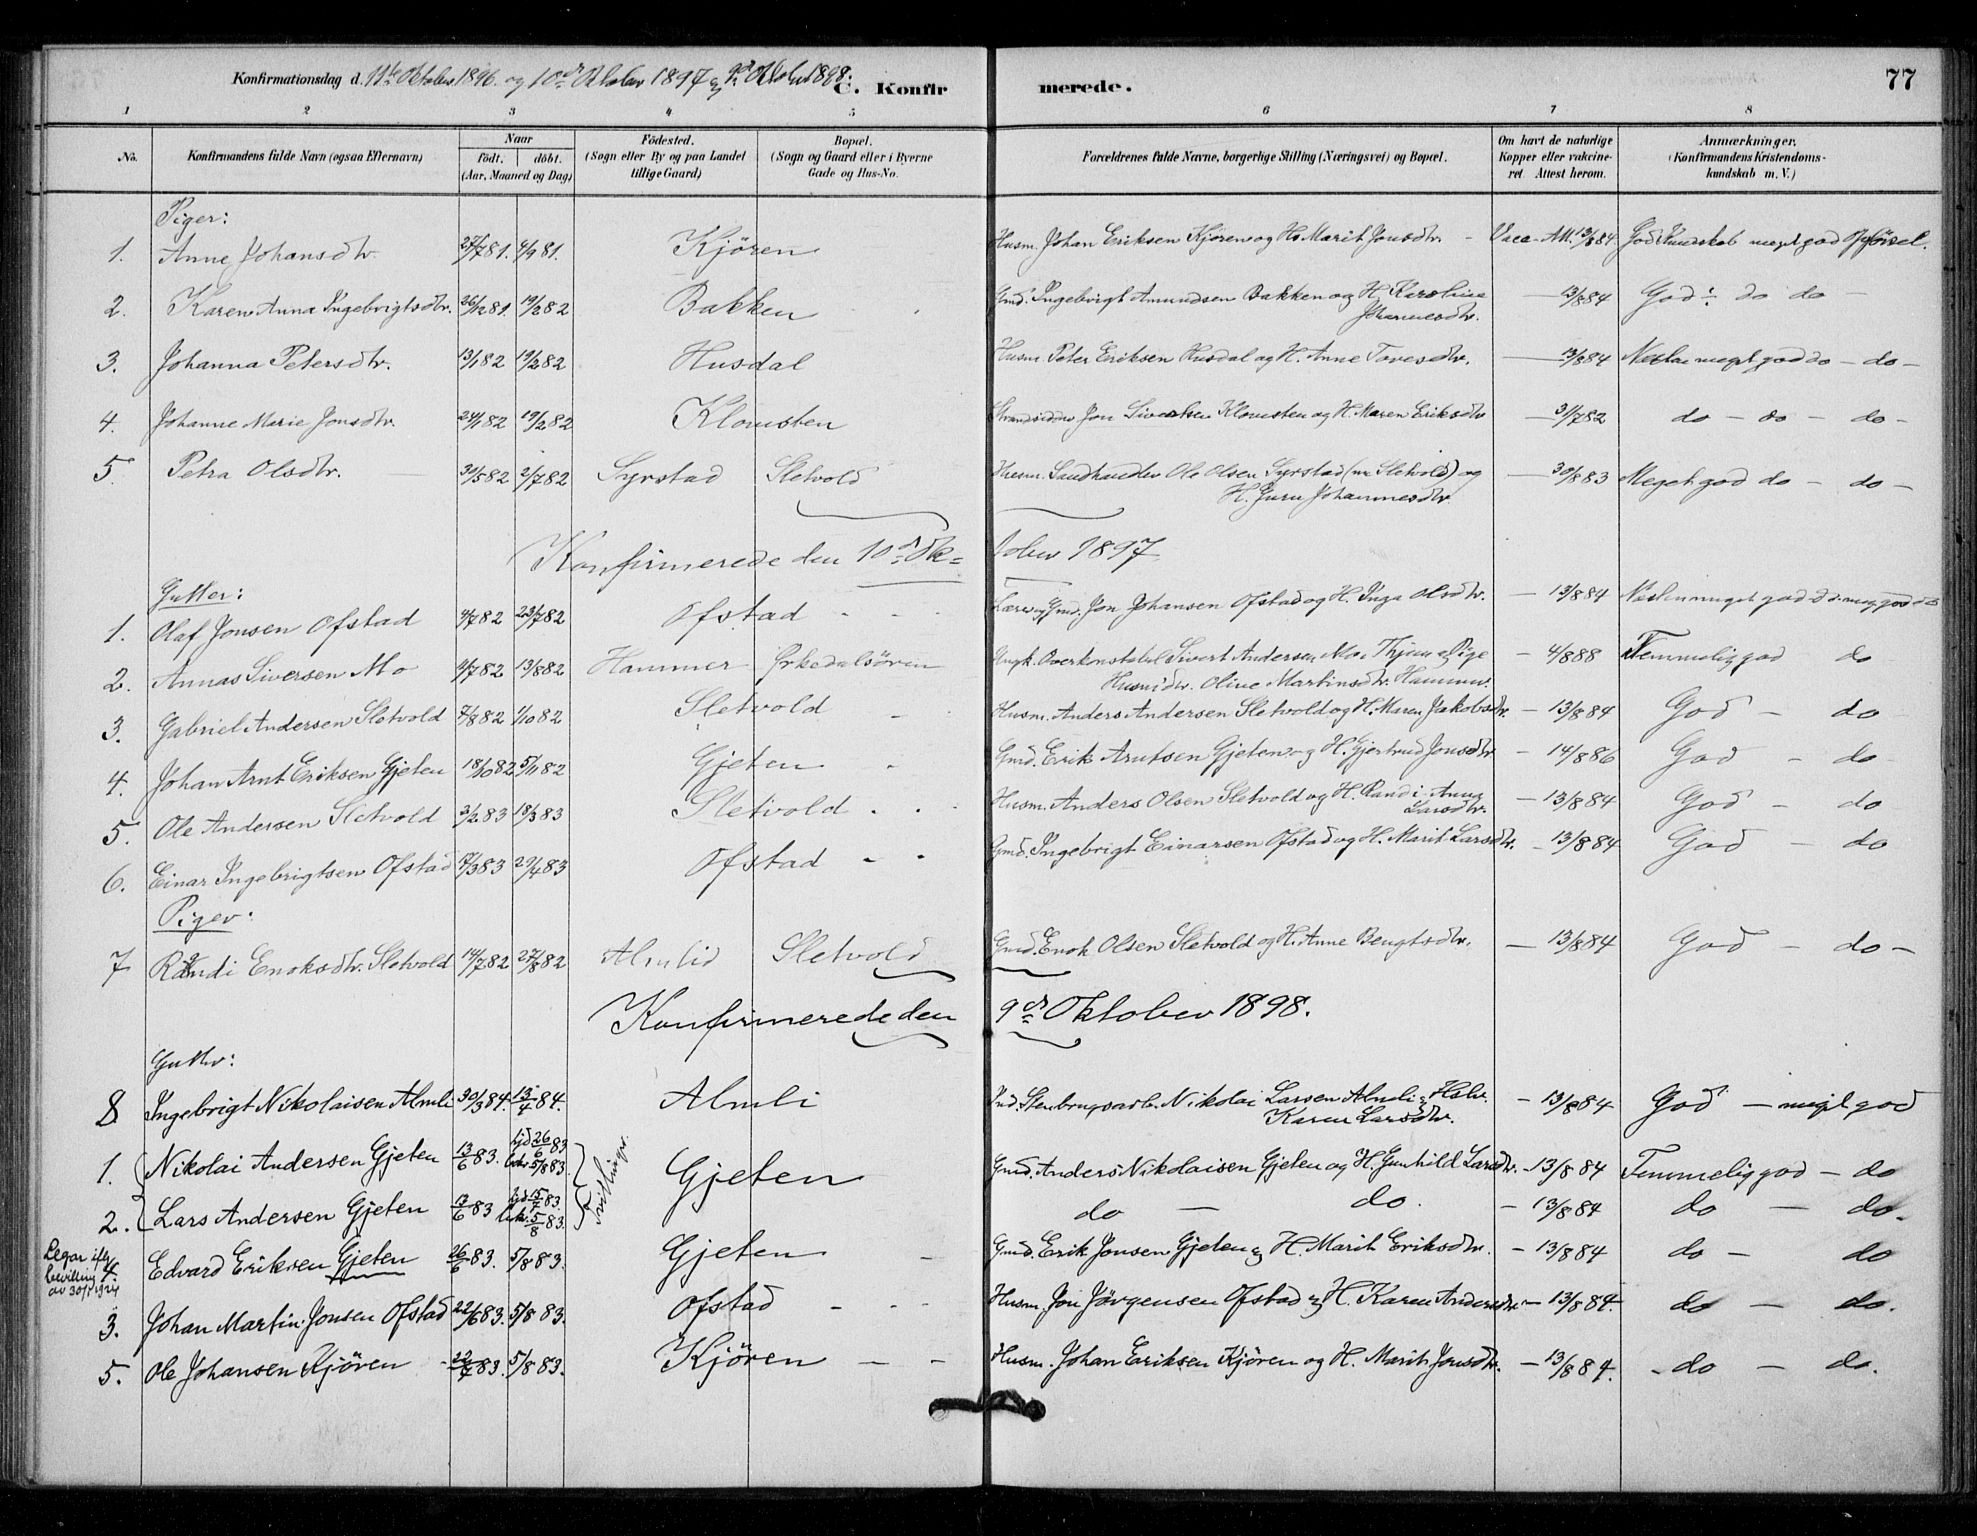 Konfirmationsdag d. 11te Oktober 1896. og 10de Oktober 1897 og 9de Oktober 1898.
C. Konfirmerede.
77
1 2 3 4 5 6 7 8
No.
Konfirmandens fulde Navn (ogsaa Efternavn)
Naar
födt. döbt.
(Aar, Maaned og Dag)
Födested.
(Sogn eller By og paa Landet
tillige Gaard)
Bopæl.
(Sogn og Gaard eller i Byerne
Gade og Hus-No.
Forældrenes fulde Navne, borgerlige Stilling (Næringsvei) og Bopæl.
Om havt de naturlige
Kopper eller vakcine-
ret Attest herom.
Anmærkninger.
(Konfirmandens Kristendoms-
kundskab m. V.)
Piger:
1. Anne Johansdtr. 27/7 81. 4/9 81. Kjören Husm. Johan Eriksen Kjören og H. Marit Jonsdtr. - Vacc. Att. 13/8 84 God Kundskab meget god Opförsel.
2. Karen Anna Ingebrigtsdtr. 26/12 81. 19/2 82 Bakken Gmd. Ingebrigt Amundsen Bakken og H. Karoline
Johannesdtr. — 13/8 84 God: do do —
3. Johanna Petersdtr. 13/1 82 19/2 82 Husdal Husm. Peter Eriksen Husdal og H. Anne Toresdtr. — 13/8 84 Næsten meget god do - do -
4. Johanne Marie Jonsdtr. 24/1 82 19/2 82 Klomsten Strandsidder Jon Sivertsen Klomsten og H. Maren Eriksdtr — 31/7 82 do - do - do -
5. Petra Olsdtr. 30/5 82 2/7 82 Syrstad Sletvold Husm. Landhandler Ole Olsen Syrstad (nu Sletvold) og
H. Guru Johannesdtr. — 30/8 83 Meget god do - do -
Konfirmerede den 10de Oktober 1897
Gutter:
1. Olaf Jonsen Ofstad 4/7 82 23/7 82 Ofstad - - Lærer og Gmd. Jon Johansen Ofstad og H. Inga Olsdtr. — 13/8 84 Næsten meget god
2. Annas Siversen Mo 4/7 82 13/8 82 Hammer Örkedalsören Ungk. Overkonstabel Sivert Andersen Mo i Thjem og Pige
Husm.dtr. Oline Martinsdtr. Hammer. - 4/8 88 Temmelig god do
3. Gabriel Andersen Sletvold 7/8 82 1/10 82 Sletvold - - Husm. Anders Andersen Sletvold og H. Maren Jakobsdtr. - 13/8 84 God - do
4. Johan Arnt Eriksen Gjeten 18/10 82 5/11 82 Gjeten - Gmd. Erik Arntsen Gjeten og H. Gjertrud Jonsdtr - 14/8 86 God - do
5. Ole Andersen Sletvold 3/2 83 18/3 83 Sletvold - - Husm. Anders Olsen Sletvold og H. Randi Anna
Larsdtr. - 13/8 84 God - do
6. Einar Ingebrigtsen Ofstad 17/3 83 29/4 83 Ofstad - - Gmd. Ingebrigt Einarsen Ofstad og H. Marit Larsdtr. - 13/8 84 God - do
Piger:
7 Randi Enoksdtr. Sletvold 14/7 82 27/8 82 Almlid Sletvold Gmd. Enok Olsen Sletvold og H. Anne Bengtsdtr. — 13/8 84 God - do -
Konfirmerede den 9de Oktober 1898.
Gutter:
8 Ingebrigt Nikolaisen Almli 30/3 84. 13/4 84. Almli Ind. Stenbrugsarb. Nikolai Larsen Almli og Hstr.
Karen Larsdtr. - 13/8 84 God - meget god
1. Nikolai Andersen Gjeten 13/6 83. hjd 26/6 83 bekr 5/8 83. Tvillinger. Gjeten Gmd. Anders Nikolaisen Gjeten og H. Gunhild Larsdtr. - 13/8 84 Temmelig god - do
2. Lars Andersen Gjeten 13/6 83 hjd 15/7 83. bekr. 5/8 83. do — do. - 13/8 84 do - do.
4. Edvard Eriksen Gjeten 26/6 83. 5/8 83. Gjeten - Gmd. Erik Jonsen Gjeten og H. Marit Eriksdtr. - 13/8 84 do - do
Legar iflg
bevilling
av 30/1 1924
3. Johan Martin Jonsen Ofstad 22/6 83. 5/8 83. Ofstad - - - Husm. Jon Jörgensen Ofstad og H. Karen Andersdtr - 13/8 84. do - do.
5. Ole Johansen Kjören - 22/7 83. 5/8 83. Kjören - - Husm. Johan Eriksen Kjören og H. Marit Jonsdtr. - 13/8 84. - do - do.